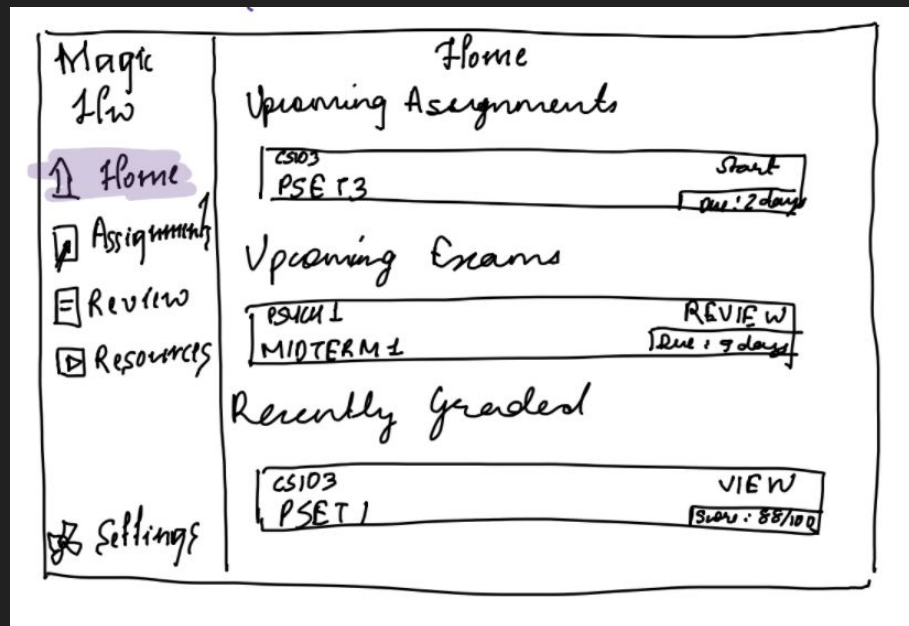 Magic
Hw
Home
Assignments
Review
Resources
Settings
Home
Upcoming Assignments
CS103
PSET3
Start
Due: 2 days
Upcoming Exams
PSYCH 1
MIDTERM 1
REVIEW
Due: 9 days
Recently Graded
CS103
PSET 1
VIEW
Score: 88/100